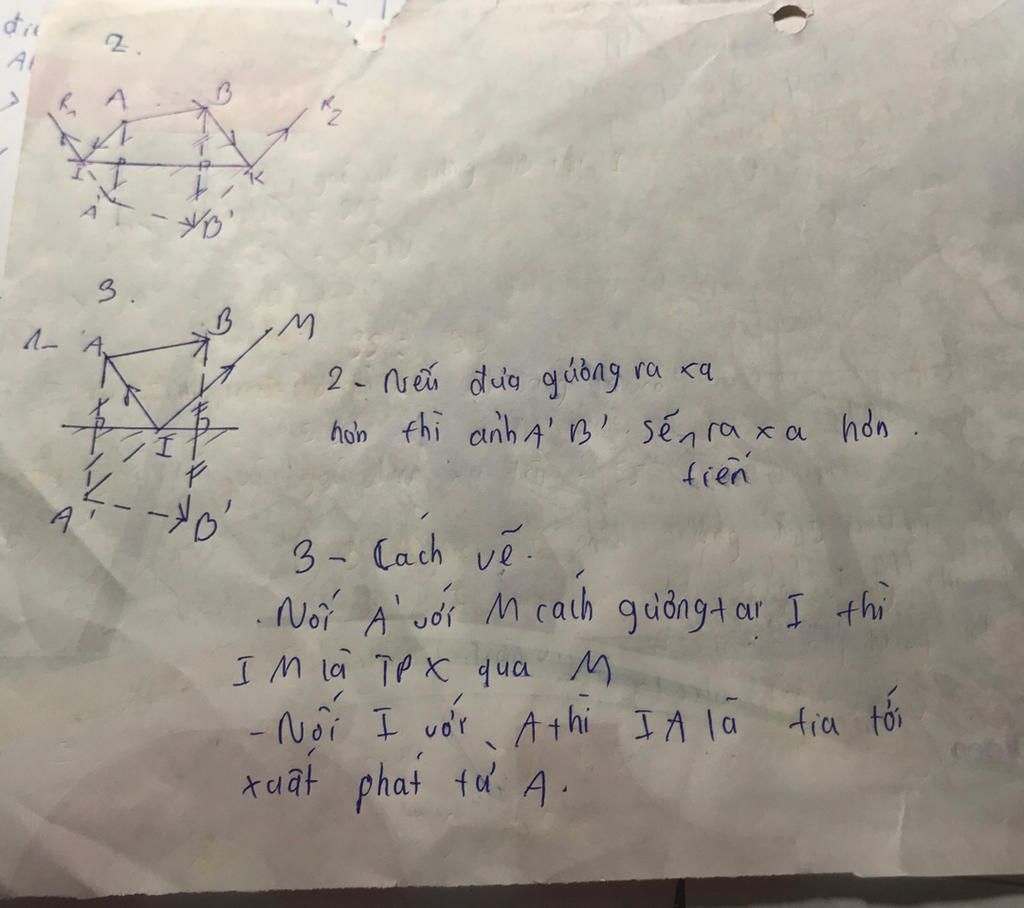 điể
2.
R1 A B R2
I K
A' B'
3.
1- A B M
I
A' B'
2 - Nếu đưa gương ra xa
hơn thì ảnh A' B' sẽ ra xa hơn.
tiến
3 - Cách vẽ.
. Nối A' với M cách gương tại I thì
IM là TPX qua M
- Nối I với A thì IA là tia tới
xuất phát từ A.